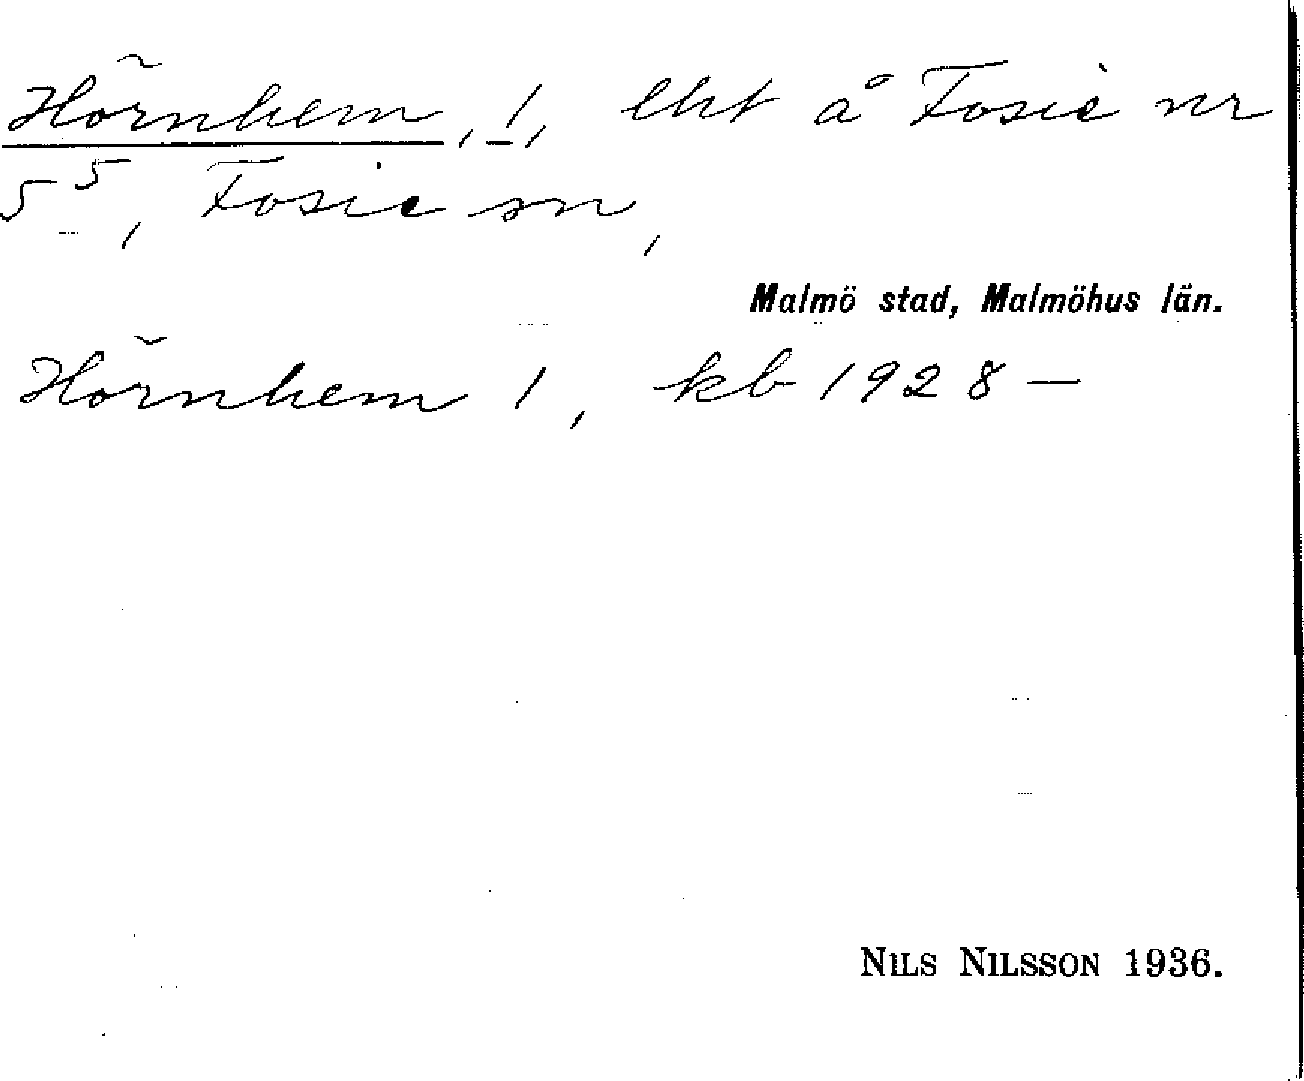 Hörnhem, 1, lht å Fosie nr
5⁵, Fosie sn,
Malmö stad, Malmöhus län.
Hörnhem 1, kb 1928 —
NILS NILSSON 1936.